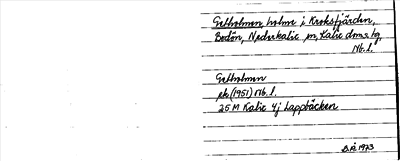 Getholmen, holme i Kroksfjärden,
Bodön, Nederkalix sn, Kalix doms. tg,
Nb. l.
Getholmen
ek (1951) Nb. l.
25 M Kalix 4j Lappbäcken
1973